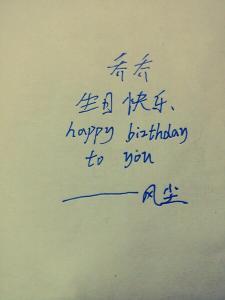 乔乔
生日快乐、
happy birthday
to you
——风尘